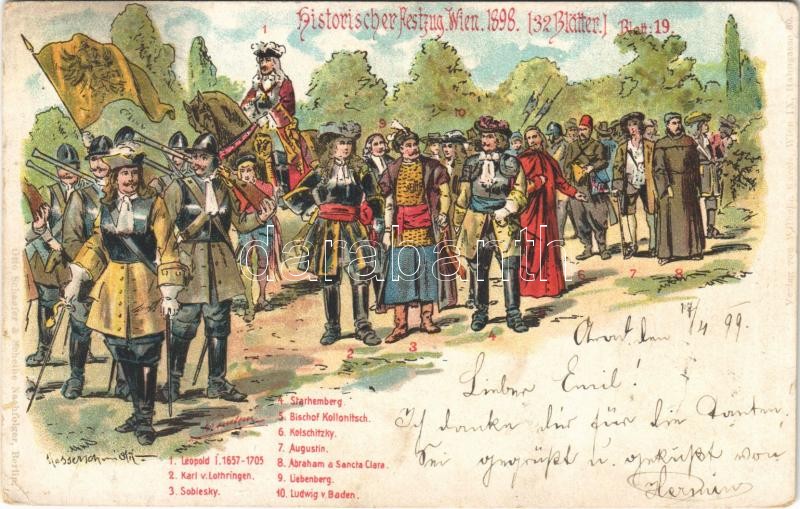 Historischer Festzug. Wien. 1898. [32 Blätter.] Blatt: 19.
1
9
10
5
6
7
8
2
3
4
darabanth
1. Leopold I. 1657-1705
2. Karl v. Lothringen.
3. Sobiesky.
4. Starhemberg.
5. Bischof Kollonitsch.
6. Kolschitzky.
7. Augustin.
8. Abraham a Sancta Clara.
9. Liebenberg.
10. Ludwig v. Baden.
Arad, den 17/4 99.
Lieber Emil!
Ich danke dir für die Karten.
Sei gegrüßt u. geküßt von
Hermine